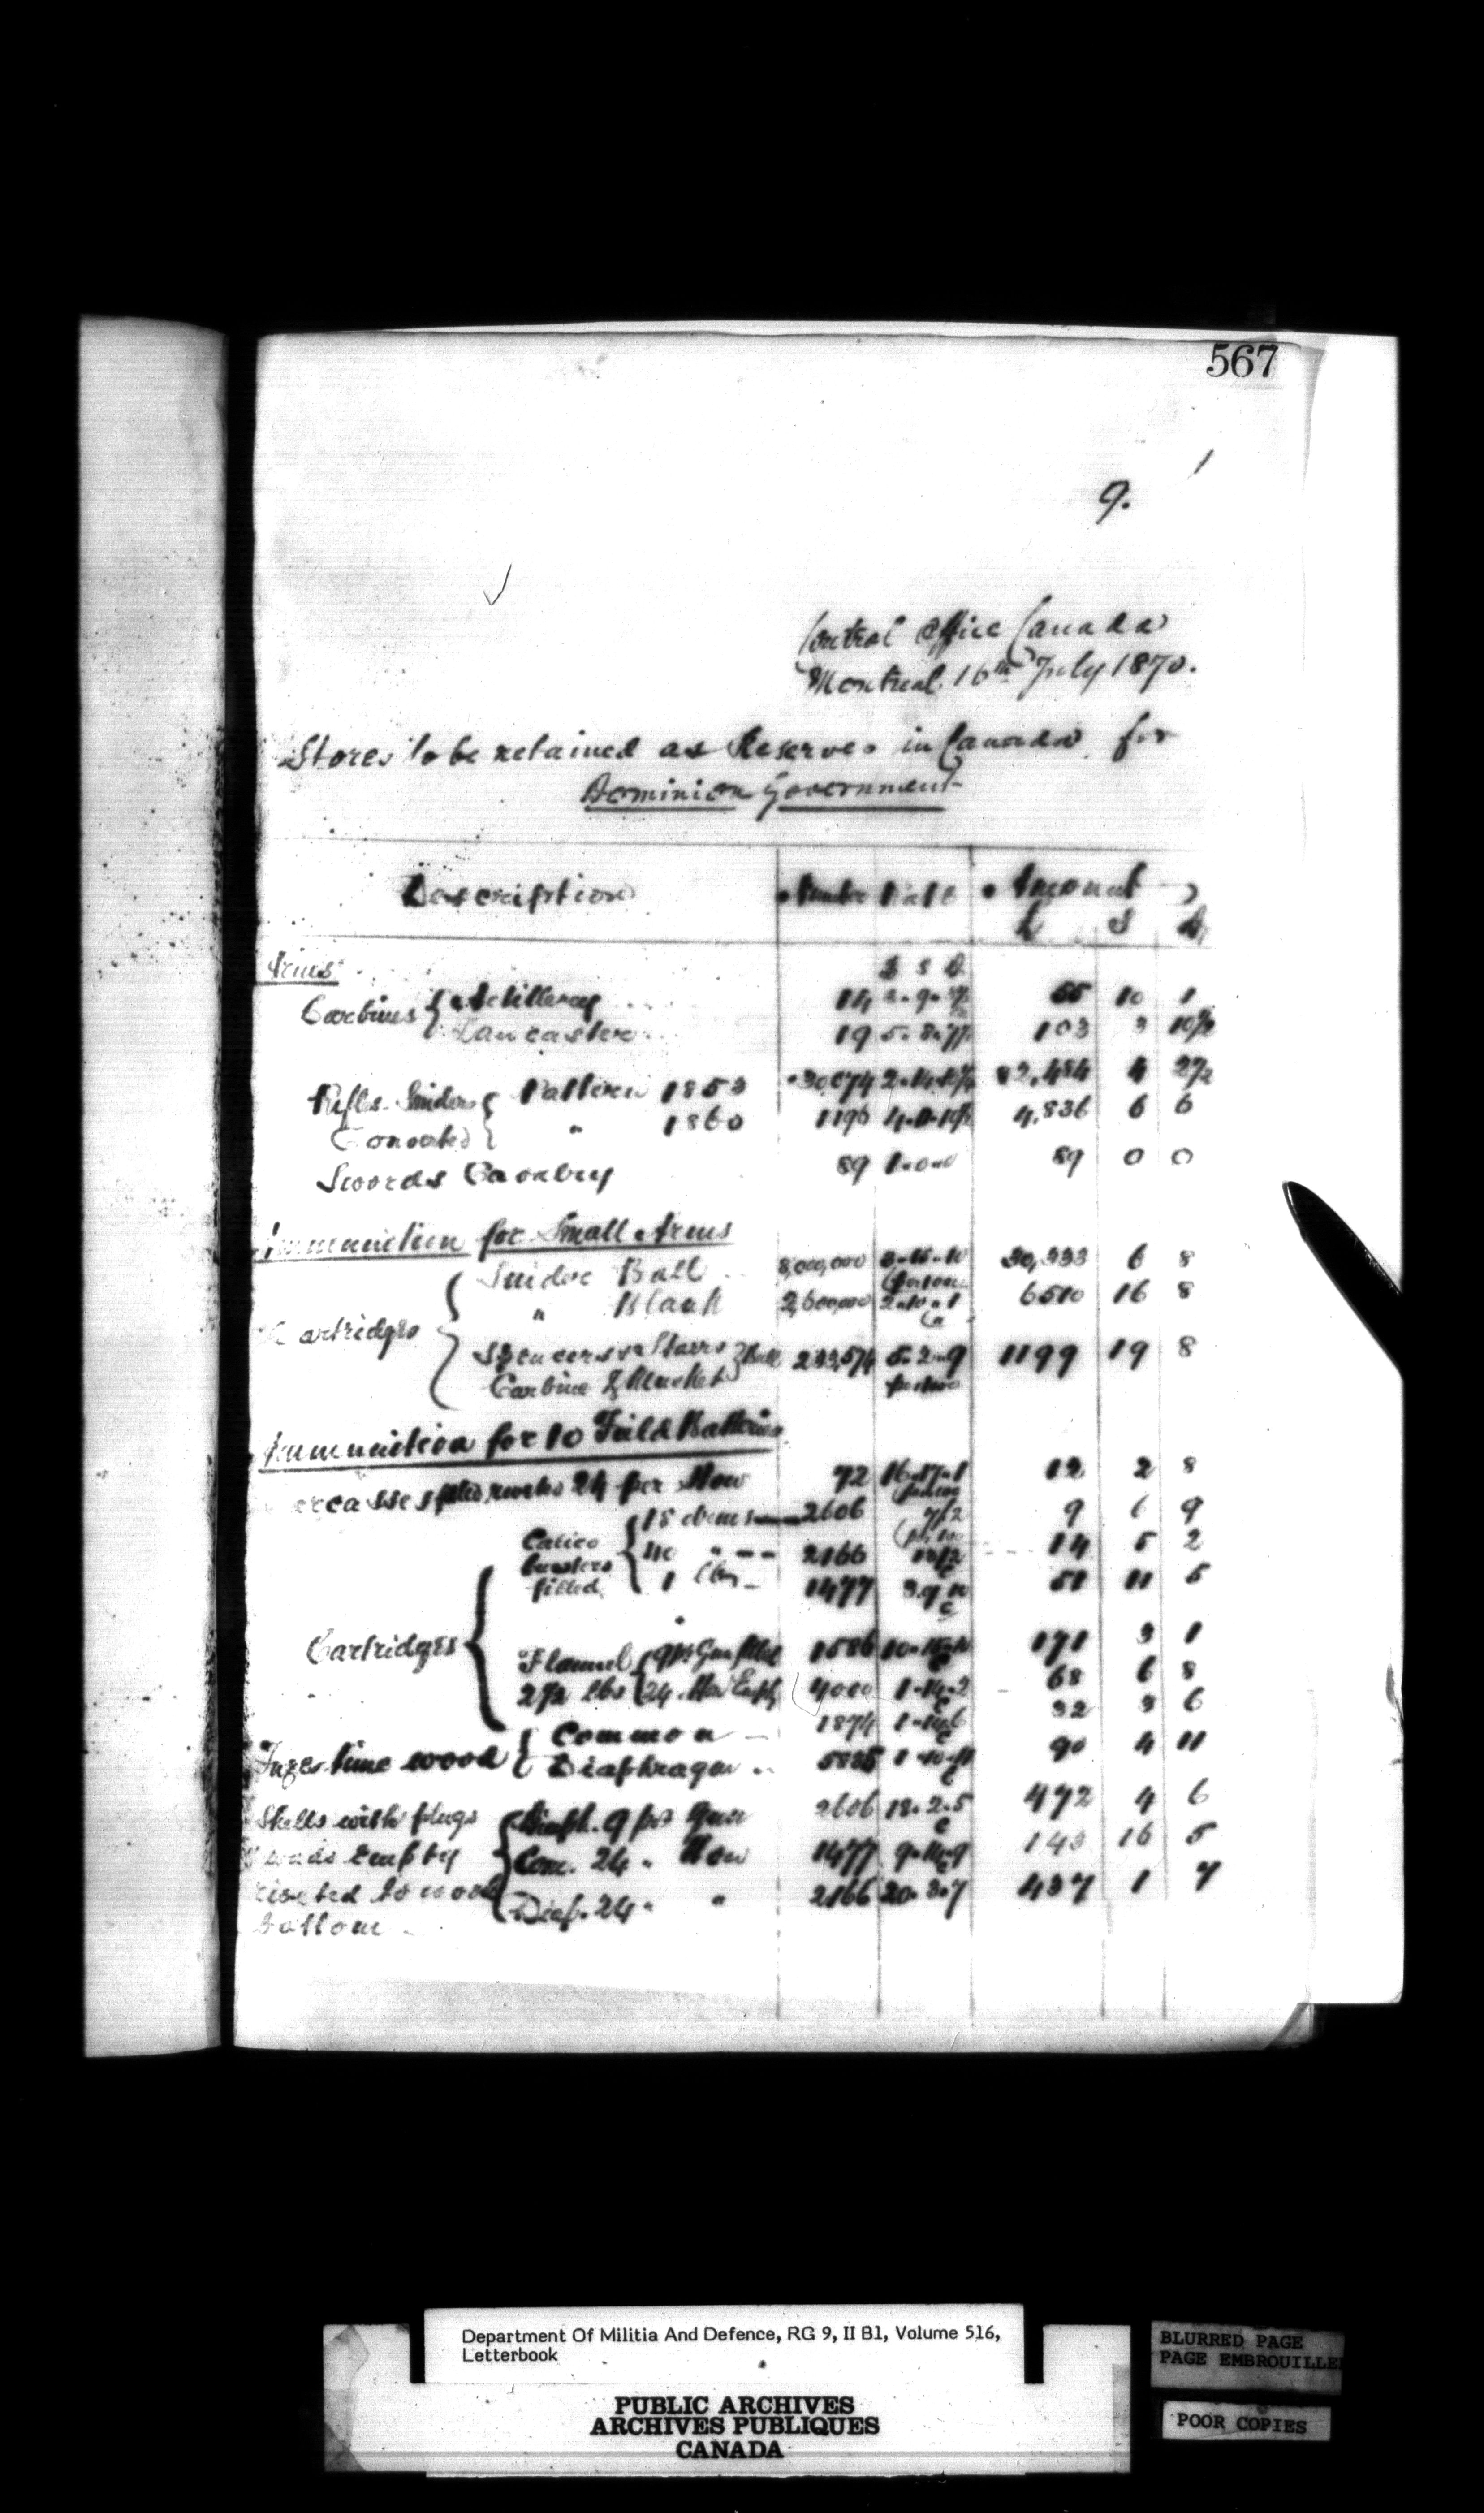 567
9.
Control Office Canada
Montreal 16th July 1870.
Stores to be retained as Reserves in Canada for
Dominion Government
Description Number Rate Amount
£ S D
Arms £ S D
Carbines { Artillery 10 1
Lancaster 19 103 3
Rifles Snider { Pattern 1853 82,484 4 2 1/2
Converted { " 1860 1196 4,836 6 6
Swords Cavalry 89 1.0.0 89 0 0
Ammunition for Small Arms
Snider Ball 8,000,000 6 8
" Blank 2,600,000 2.10.1 6510 16 8
Cartridges {
Spencers & Starrs } Ball 233,574 5.2.9 1199 19 8
Carbine & Musket
Ammunition for 10 Field Batteries
24 pr How 72 16.17.1 12 2 8
Calico { 18 drams 2606 7/2 9 6 9
bursters { 40 " 2166 14 5 2
filled { 1 lbs 1477 3.9.10 51 11 5
Cartridges {
Flannel { 9 pr Gun filled 1586 171 3 1
2 1/2 lbs { 24 . How Empty 4000 1.14.2 68 6 8
Fuzes time wood { Common 1874 32 3 6
Diaphragm 90 4 11
Shells with plugs { Diaph. 9 pr Gun 2606 18.2.5 472 4 6
empty { Com. 24 . How 1477 9.14.9 143 16 5
riveted to wood { Diap. 24 . " 2166 20.3.7 437 1 7
bottom
Department Of Militia And Defence, RG 9, II B1, Volume 516,
Letterbook
BLURRED PAGE
PAGE EMBROUILLE
PUBLIC ARCHIVES
ARCHIVES PUBLIQUES
CANADA
POOR COPIES